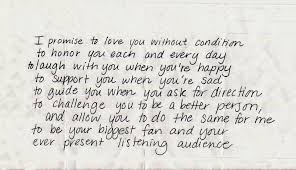 I promise to love you without condition
to honor you each and every day
to laugh with you when you're happy
to support you when you're sad
to guide you when you ask for direction
to challenge you to be a better person,
and allow you to do the same for me
to be your biggest fan and your
ever present listening audience